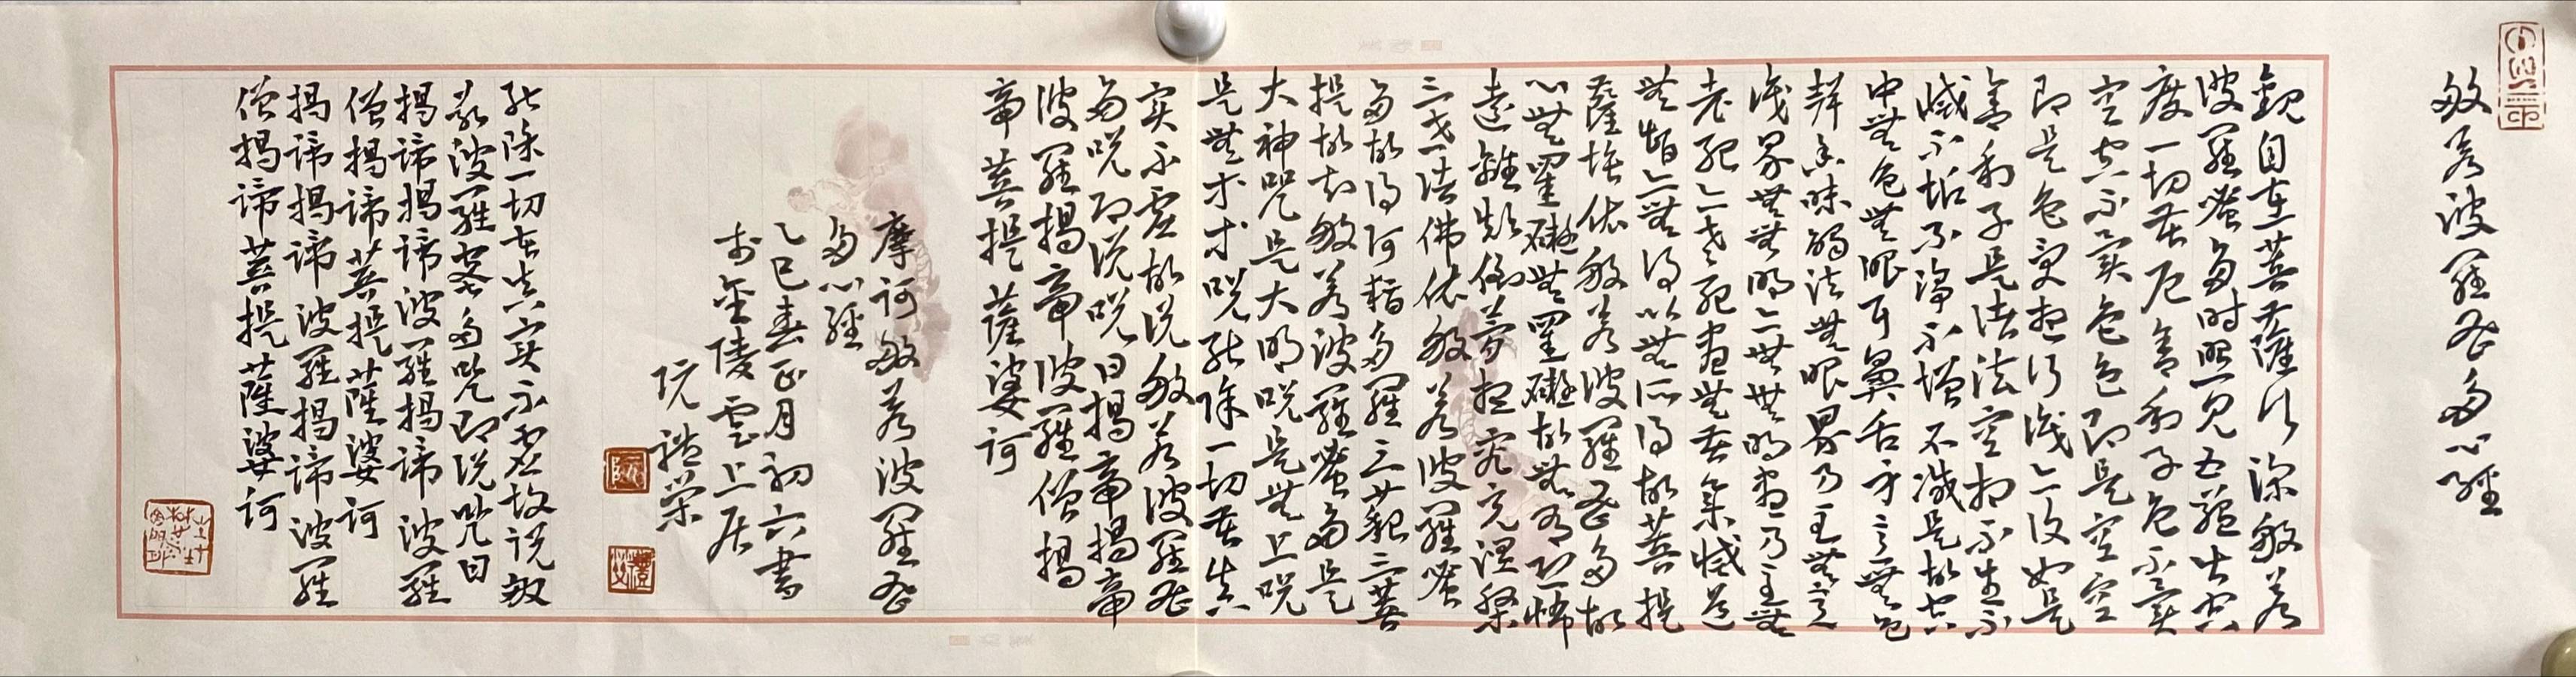 般若波羅蜜多心經
觀自在菩薩行深般若
波羅蜜多時照見五蘊皆空
度一切苦厄舍利子色不異
空空不異色色即是空空
即是色受想行識亦復如是
舍利子是諸法空相不生不
滅不垢不淨不增不減是故空
中無色無受想行識無眼耳鼻舌身意無色
聲香味觸法無眼界乃至無意
識界無無明亦無無明盡乃至無
老死亦無老死盡無苦集滅道
無智亦無得以無所得故菩提
薩埵依般若波羅蜜多故
心無罣礙無罣礙故無有恐怖
遠離顛倒夢想究竟涅槃
三世諸佛依般若波羅蜜
多故得阿耨多羅三藐三菩
提故知般若波羅蜜多是
大神咒是大明咒是無上咒
是無等等咒能除一切苦真
實不虛故說般若波羅蜜
多咒即說咒曰揭帝揭帝
波羅揭帝波羅僧揭
帝菩提薩婆訶
摩訶般若波羅蜜
多心經
乙巳春正月初六書
於金陵雲上居
阮禮榮
能除一切苦真實不虛故說般
若波羅蜜多咒即說咒曰
揭諦揭諦波羅揭諦波羅
僧揭諦菩提薩婆訶
揭諦揭諦波羅揭諦波羅
僧揭諦菩提薩婆訶